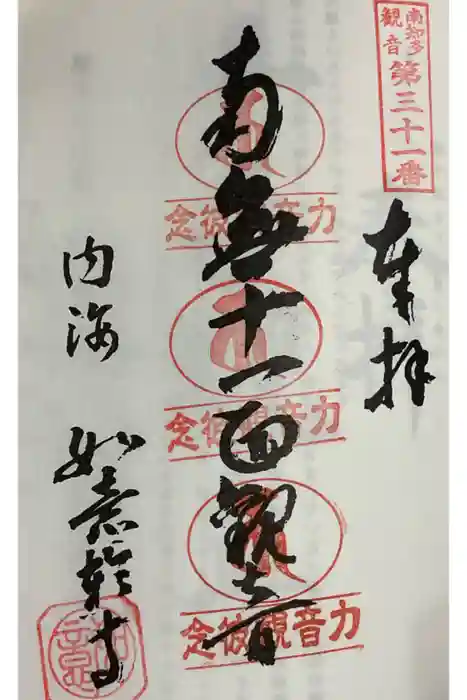 南知多
観音
第三十一番
奉拝
南無十一面観音
念彼観音力
念彼観音力
念彼観音力
内海
如意輪寺